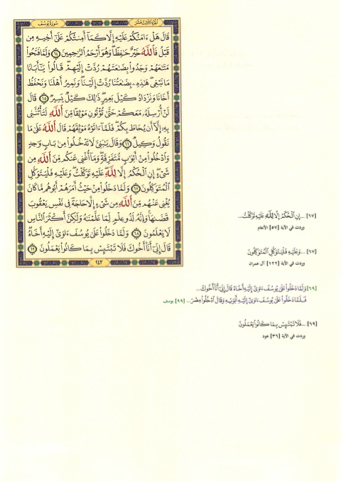 سورة يوسف
الجزء الثالث عشر
قَالَ هَلْ ءَامَنُكُمْ عَلَيْهِ إِلَّا كَمَا أَمِنتُكُمْ عَلَىٰ أَخِيهِ مِن
قَبْلُ فَاللَّهُ خَيْرٌ حَافِظًا وَهُوَ أَرْحَمُ الرَّاحِمِينَ ﴿٦٤﴾ وَلَمَّا فَتَحُوا
مَتَاعَهُمْ وَجَدُوا بِضَاعَتَهُمْ رُدَّتْ إِلَيْهِمْ قَالُوا يَا أَبَانَا
مَا نَبْغِي هَٰذِهِ بِضَاعَتُنَا رُدَّتْ إِلَيْنَا وَنَمِيرُ أَهْلَنَا وَنَحْفَظُ
أَخَانَا وَنَزْدَادُ كَيْلَ بَعِيرٍ ذَٰلِكَ كَيْلٌ يَسِيرٌ ﴿٦٥﴾ قَالَ
لَنْ أُرْسِلَهُ مَعَكُمْ حَتَّىٰ تُؤْتُونِ مَوْثِقًا مِّنَ اللَّهِ لَتَأْتُنَّنِي
بِهِ إِلَّا أَن يُحَاطَ بِكُمْ فَلَمَّا ءَاتَوْهُ مَوْثِقَهُمْ قَالَ اللَّهُ عَلَىٰ مَا
نَقُولُ وَكِيلٌ ﴿٦٦﴾ وَقَالَ يَا بَنِيَّ لَا تَدْخُلُوا مِن بَابٍ وَاحِدٍ
وَادْخُلُوا مِنْ أَبْوَابٍ مُّتَفَرِّقَةٍ وَمَا أُغْنِي عَنكُم مِّنَ اللَّهِ مِن
شَيْءٍ إِنِ الْحُكْمُ إِلَّا لِلَّهِ عَلَيْهِ تَوَكَّلْتُ وَعَلَيْهِ فَلْيَتَوَكَّلِ
الْمُتَوَكِّلُونَ ﴿٦٧﴾ وَلَمَّا دَخَلُوا مِنْ حَيْثُ أَمَرَهُمْ أَبُوهُم مَّا كَانَ
يُغْنِي عَنْهُم مِّنَ اللَّهِ مِن شَيْءٍ إِلَّا حَاجَةً فِي نَفْسِ يَعْقُوبَ
قَضَاهَا وَإِنَّهُ لَذُو عِلْمٍ لِّمَا عَلَّمْنَاهُ وَلَٰكِنَّ أَكْثَرَ النَّاسِ
لَا يَعْلَمُونَ ﴿٦٨﴾ وَلَمَّا دَخَلُوا عَلَىٰ يُوسُفَ ءَاوَىٰ إِلَيْهِ أَخَاهُ
قَالَ إِنِّي أَنَا أَخُوكَ فَلَا تَبْتَئِسْ بِمَا كَانُوا يَعْمَلُونَ ﴿٦٩﴾
٢٤٣
[٦٧] ...إِنِ الْحُكْمُ إِلَّا لِلَّهِ عَلَيْهِ تَوَكَّلْتُ...
وردت في الآية [٥٧] الأنعام
[٦٧] ...وَعَلَيْهِ فَلْيَتَوَكَّلِ الْمُتَوَكِّلُونَ
وردت في الآية [١٢٢] آل عمران
[٦٩] وَلَمَّا دَخَلُوا عَلَىٰ يُوسُفَ ءَاوَىٰ إِلَيْهِ أَخَاهُ قَالَ إِنِّي أَنَا أَخُوكَ...
فَلَمَّا دَخَلُوا عَلَىٰ يُوسُفَ ءَاوَىٰ إِلَيْهِ أَبَوَيْهِ وَقَالَ ادْخُلُوا مِصْرَ... [٩٩] يوسف
[٦٩] ...فَلَا تَبْتَئِسْ بِمَا كَانُوا يَعْمَلُونَ
وردت في الآية [٣٦] هود